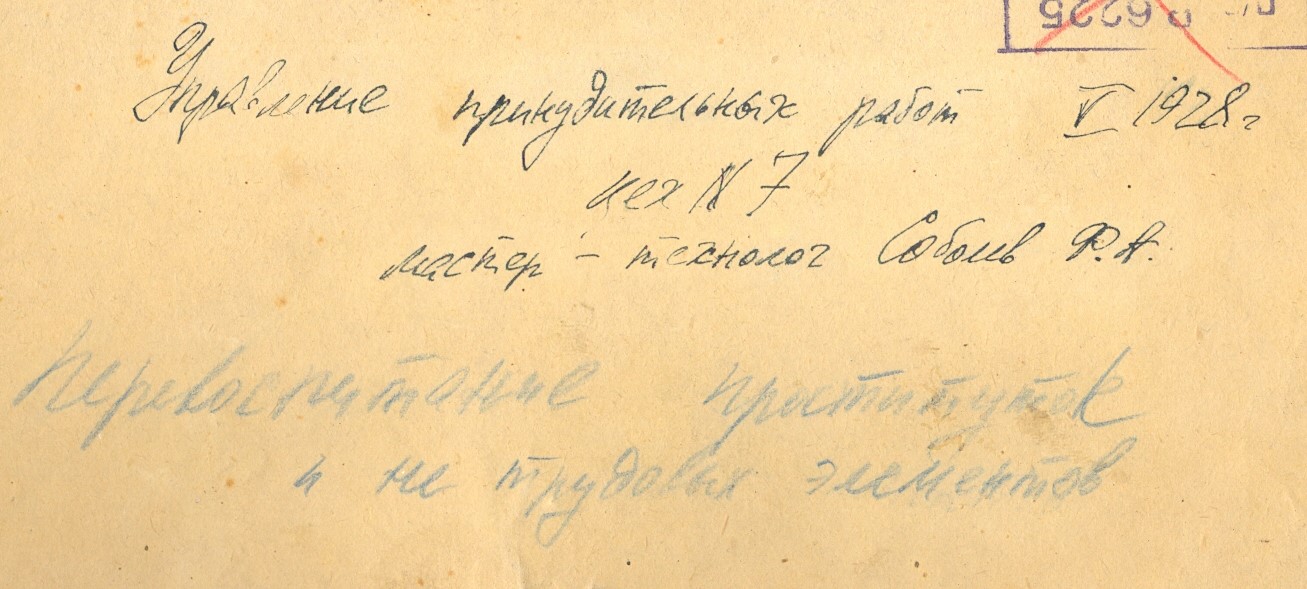 6225
Управление принудительных работ V 1928г
цех N 7
мастер - технолог Соболев Ф.А.
Перевоспитание проституток
и не трудовых элементов